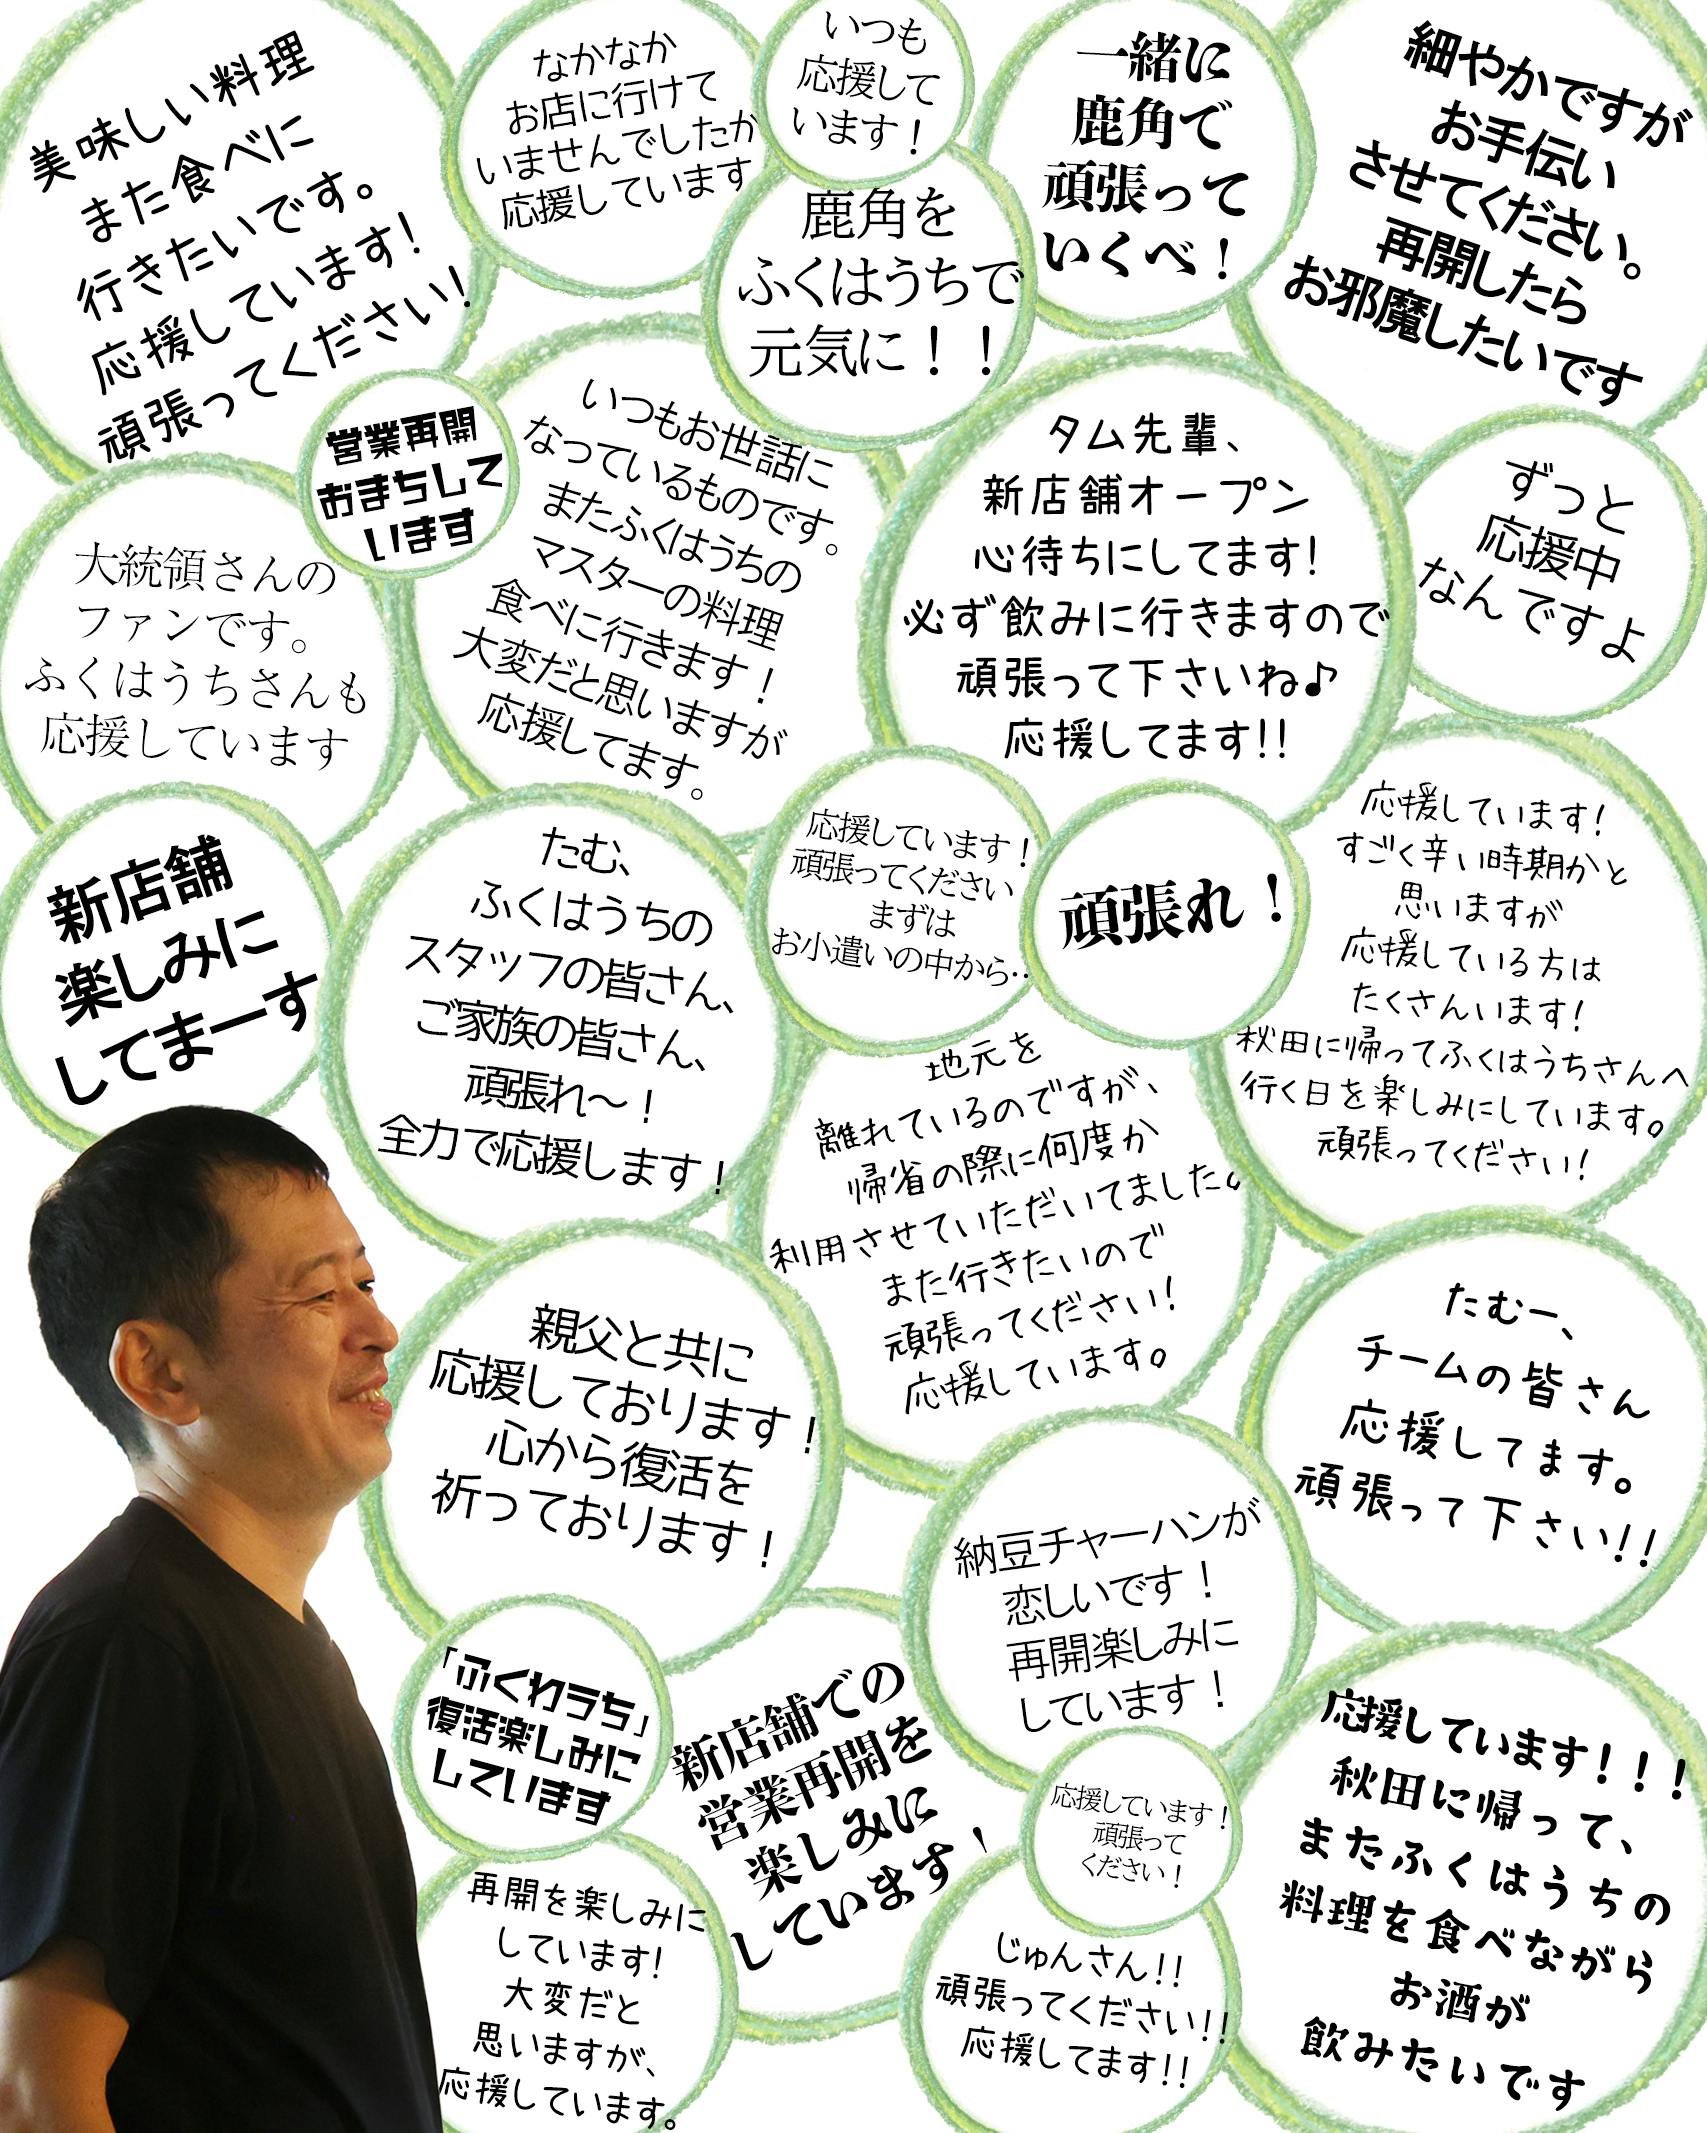 美味しい料理
また食べに
行きたいです。
応援しています!
頑張ってください!
なかなか
お店に行けて
いませんでしたが
応援しています
いつも
応援して
います!
鹿角を
ふくはうちで
元気に!!
一緒に
鹿角で
頑張って
いくべ!
細やかですが
お手伝い
させてください。
再開したら
お邪魔したいです
営業再開
おまちして
います
いつもお世話に
なっているものです。
またふくはうちの
マスターの料理
食べに行きます!
大変だと思いますが
応援してます。
タム先輩、
新店舗オープン
心待ちにしてます!
必ず飲みに行きますので
頑張って下さいね♪
応援してます!!
ずっと
応援中
なんですよ
大統領さんの
ファンです。
ふくはうちさんも
応援しています
新店舗
楽しみに
してまーす
たむ、
ふくはうちの
スタッフの皆さん、
ご家族の皆さん、
頑張れ〜!
全力で応援します!
応援しています!
頑張ってください
まずは
お小遣いの中から‥
頑張れ!
応援しています!
すごく辛い時期かと
思いますが
応援している方は
たくさんいます!
秋田に帰ってふくはうちさんへ
行く日を楽しみにしています。
頑張ってください!
地元を
離れているのですが、
帰省の際に何度か
利用させていただいてました。
また行きたいので
頑張ってください!
応援しています。
親父と共に
応援しております!
心から復活を
祈っております!
たむー、
チームの皆さん
応援してます。
頑張って下さい!!
納豆チャーハンが
恋しいです!
再開楽しみに
しています!
「ふくわうち」
復活楽しみに
しています
新店舗での
営業再開を
楽しみに
しています!
応援しています!
頑張って
ください!
応援しています!!!
秋田に帰って、
またふくはうちの
料理を食べながら
お酒が
飲みたいです
再開を楽しみに
しています!
大変だと
思いますが、
応援しています。
じゅんさん!!
頑張ってください!!
応援してます!!